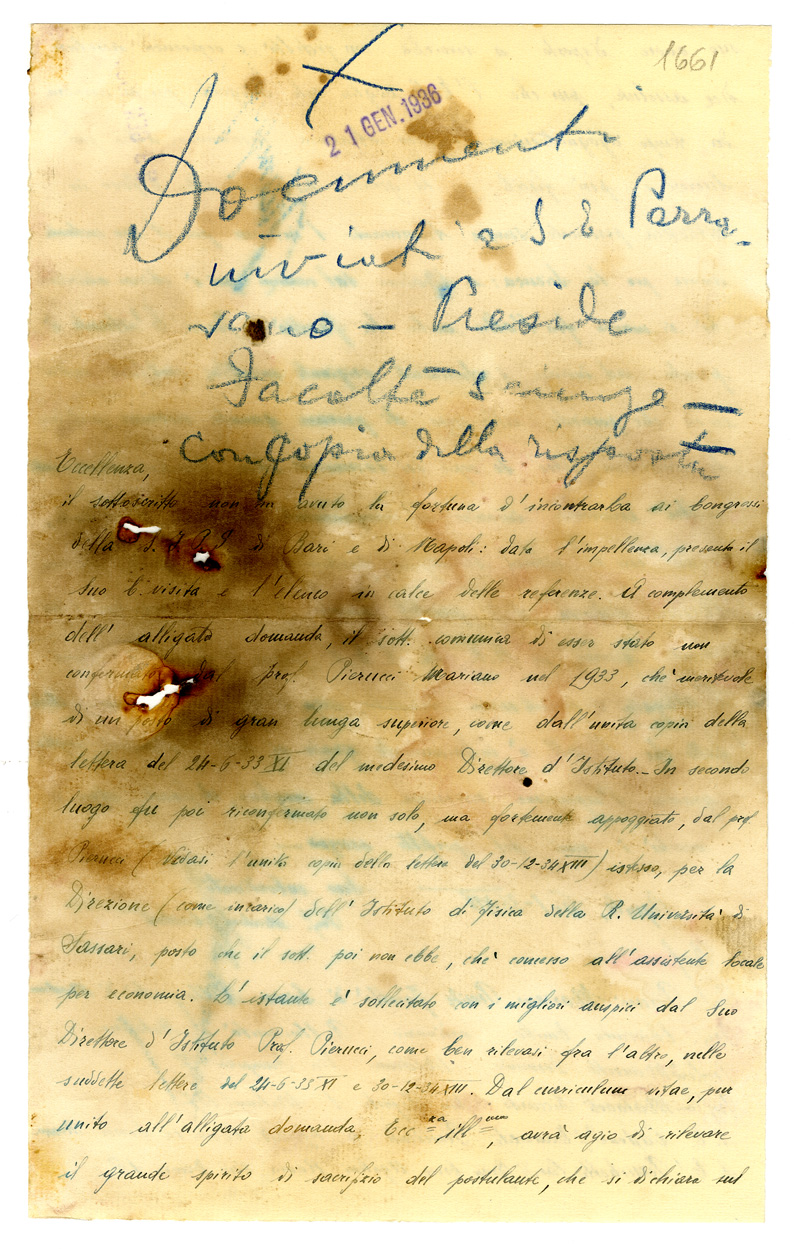 1661
X
21 GEN. 1936
Documenti
inviati a S E Parra-
vano — Preside
Facoltà Scienze —
con copia della risposta
Eccellenza,
il sottoscritto non ha avuto la fortuna d'incontrarLa ai Congressi
della S. I. P. S di Bari e di Napoli: data l'impellenza, presenta il
suo b. visita e l'elenco in calce delle referenze. A complemento
dell' alligata domanda, il sott. comunica di esser stato non
confermato dal prof. Pierucci Mariano nel 1933, chè meritevole
di un posto di gran lunga superiore, come dall'unita copia della
lettera del 24-6-33 XI del medesimo Direttore d'Istituto.- In secondo
luogo fu poi riconfermato non solo, ma fortemente appoggiato, dal prof.
Pierucci (Vedasi l'unita copia della lettera del 30-12-34 XIII) istesso, per la
Direzione (come incarico) dell' Istituto di Fisica della R. Università di
Sassari, posto che il sott. poi non ebbe, chè concesso all'assistente locale
per economia. L'istante è sollecitato con i migliori auspici dal Suo
Direttore d'Istituto Prof. Pierucci, come ben rilevasi fra l'altro, nelle
suddette lettere del 24-6-33 XI e 30-12-34 XIII. Dal curriculum vitae, pur
unito all'alligata domanda, Ecc.za ill.ma, avrà agio di rilevare
il grande spirito di sacrifizio del postulante, che si dichiara sul